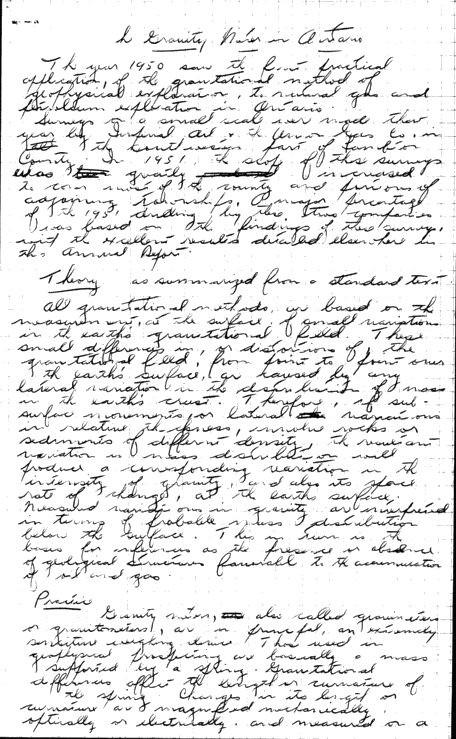 Gravity Meter in Ontario
The year 1950 saw the first practical
application, of the gravitational method of
geophysical exploration, to natural gas and
petroleum exploration in Ontario.
Surveys on a small scale were made that
year by Imperial Oil & the Union Gas Co. in
the part of Lambton
County. In 1951 the scope of this surveys
was greatly increased
to cover most of the county and portions of
adjoining townships. A major percentage
of the 1951 drilling by the two companies
was based on the findings of these surveys,
with the excellent results detailed elsewhere in
this Annual Report.
Theory as summarized from a standard text
All gravitational methods are based on the
measurement, at the surface, of small variations
in the earth's gravitational field. These
small differences in, or distortions of, the
gravitational field, from point to point over
the earth's surface, are caused by any
lateral variation in the distribution of mass
in the earth's crust. Therefore, if sub-
surface movements or lateral variations
in relative thickness, involve rocks or
sediments of different density, the resultant
variation in mass distribution will
produce a corresponding variation in the
intensity of gravity, and also its space
rate of change, at the earth's surface.
Measured variations in gravity are interpreted
in terms of probable mass distribution
below the surface. This in turn is the
basis for inferences as the presence or absence
of geological structures favourable to the accumulation
of oil and gas.
Practice
Gravity meters, also called gravimeters
or gravitometers, are in principle, an extremely
sensitive weighing device. Those used in
geophysical prospecting are basically a mass
supported by a spring. Gravitational
differences affect the length or curvature of
the spring. Changes in its length or
curvature are magnified mechanically,
optically or electrically and measured on a